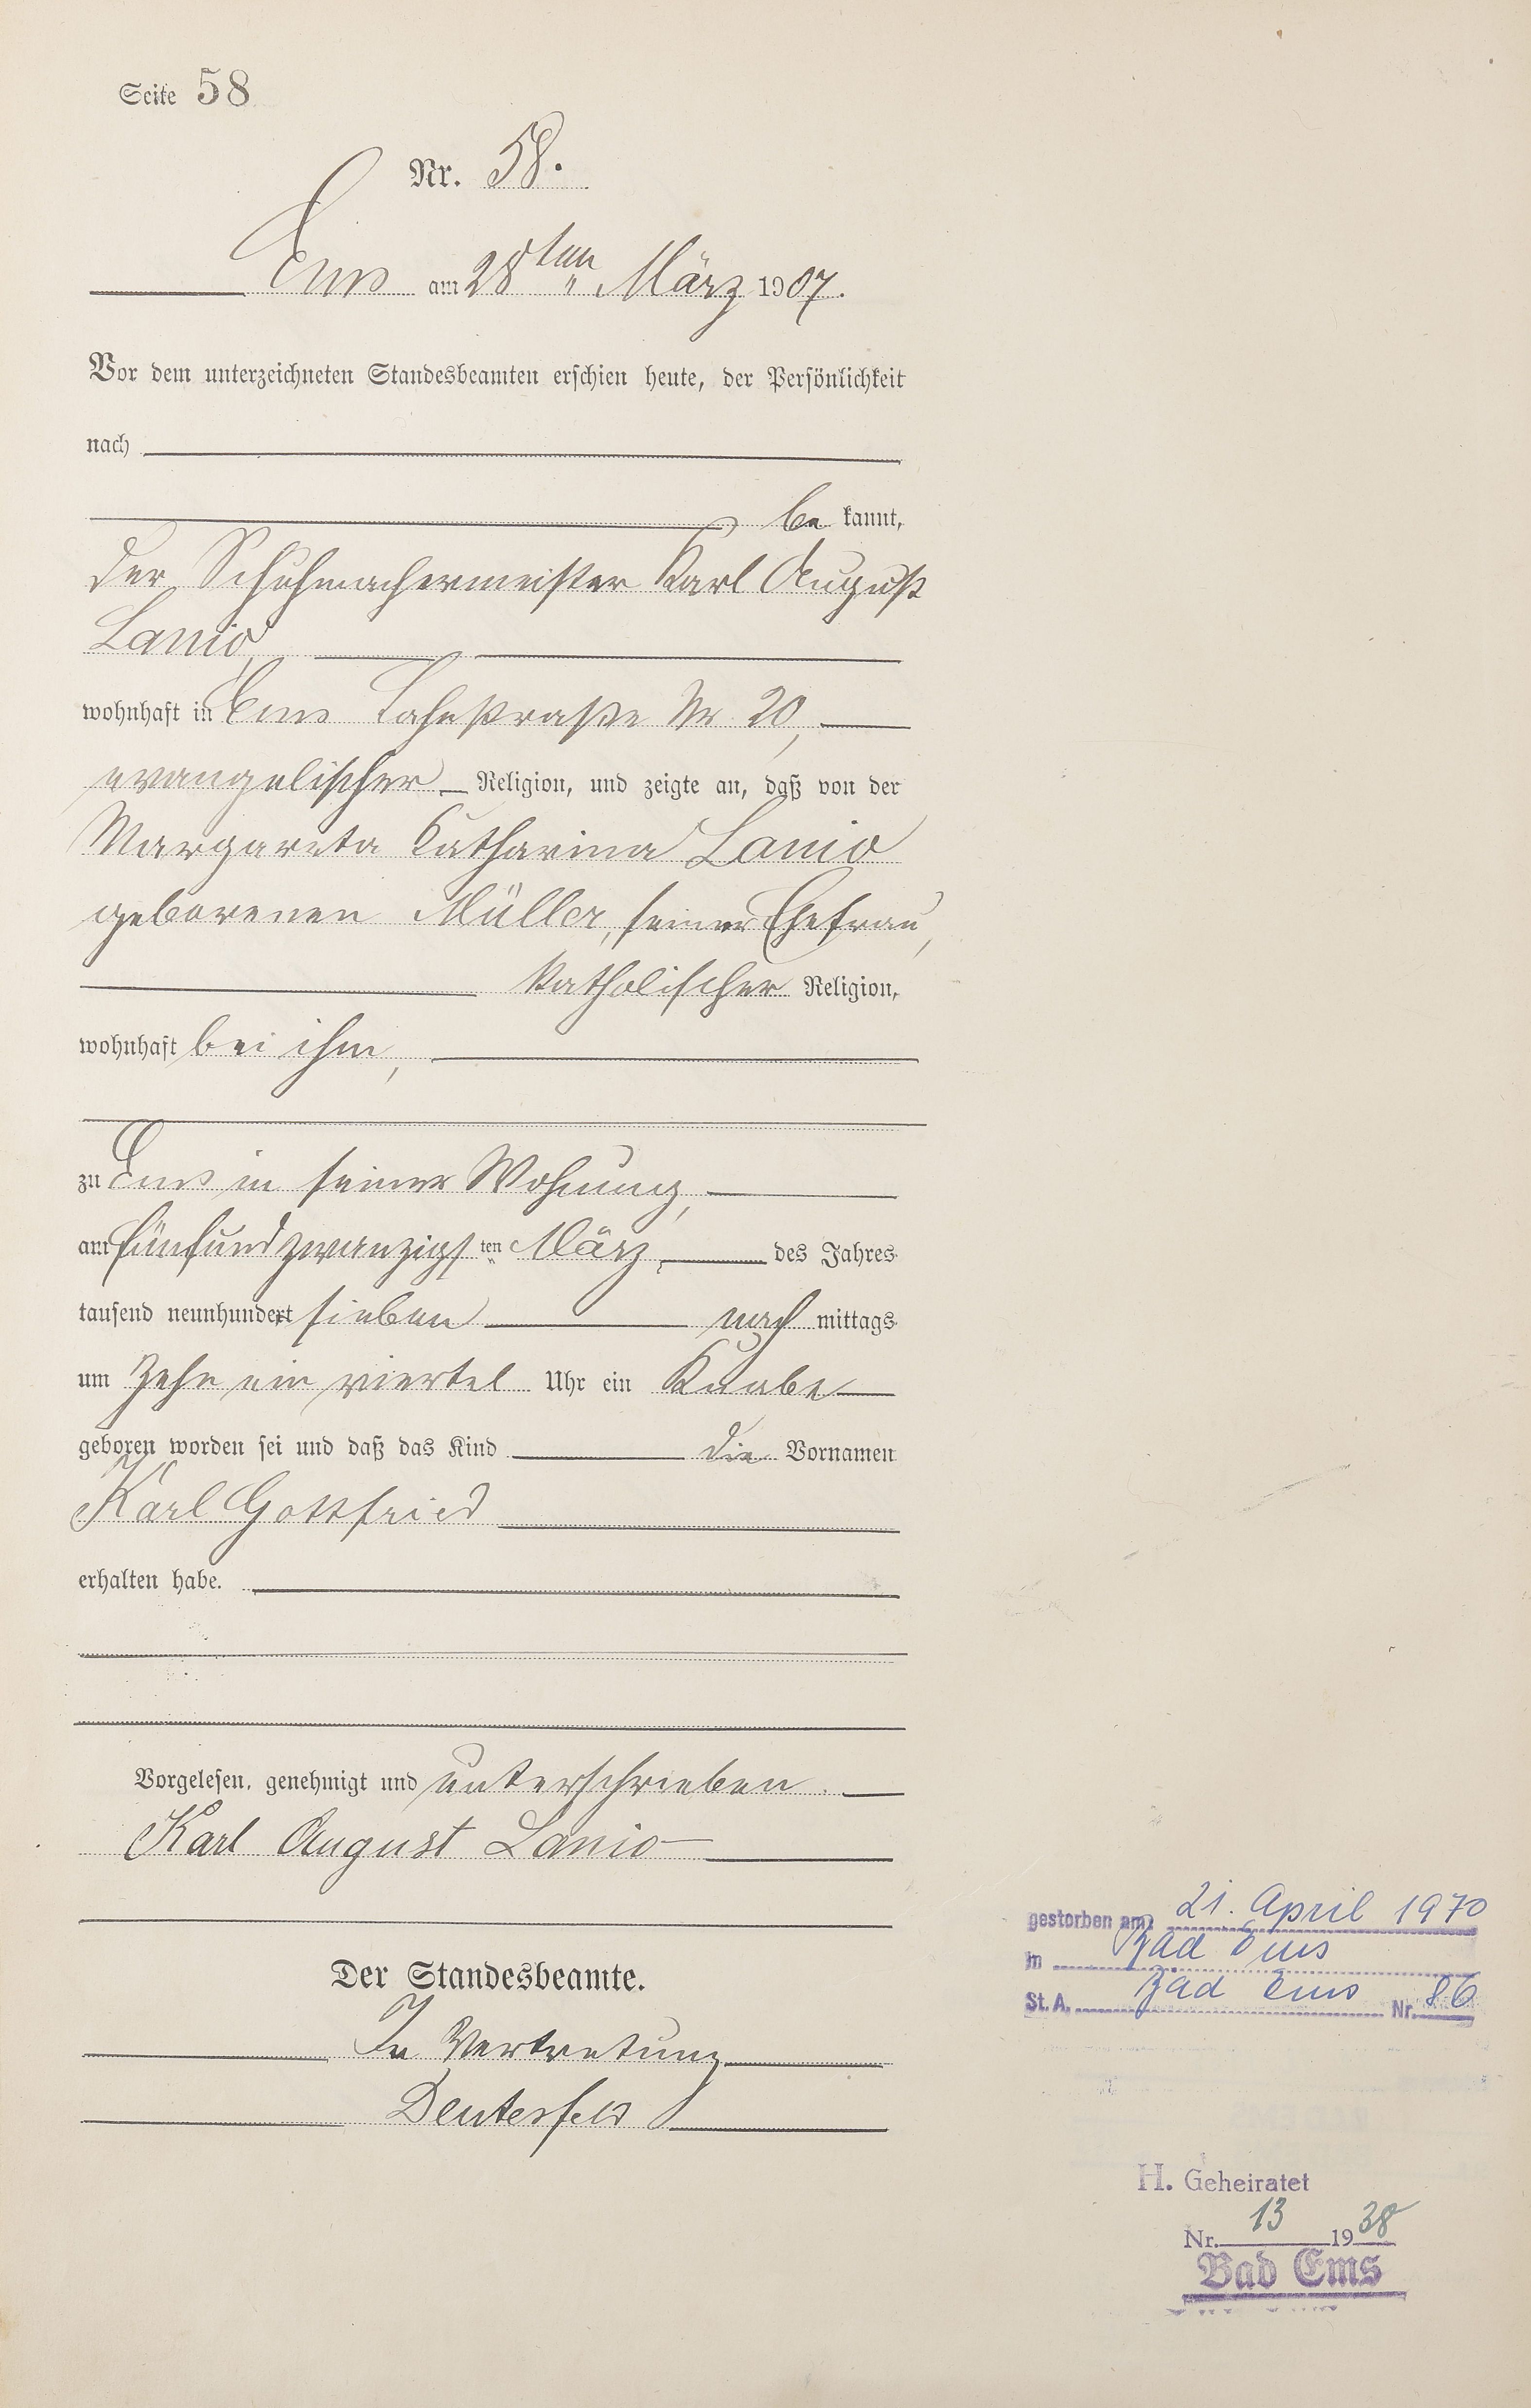 Seite 58
Nr. 58.
Ems am 28ten März 1907.
Vor dem unterzeichneten Standesbeamten erschien heute, der Persönlichkeit
nach
be kannt,
der Schuhmachermeister Karl August
Lanio,
wohnhaft in Ems Lahnstraße Nr. 20,
evangelischer Religion, und zeigte an, daß von der
Margareta Katharina Lanio
geborenen Müller, seiner Ehefrau,
katholischer Religion,
wohnhaft bei ihm,
zu Ems in seiner Wohnung,
am fünfundzwanzigsten März, des Jahres
tausend neunhundert sieben nach mittags
um zehn ein viertel Uhr ein Knabe
geboren worden sei und daß das Kind die Vornamen
Karl Gottfried
erhalten habe.
Vorgelesen, genehmigt und unterschrieben.
Karl August Lanio
Der Standesbeamte.
In Vertretung
Deutesfeld
gestorben am 21. April 1970
in Bad Ems
St. A. Bad Ems Nr. 86
H. Geheiratet
Nr. 13 1938
Bad Ems